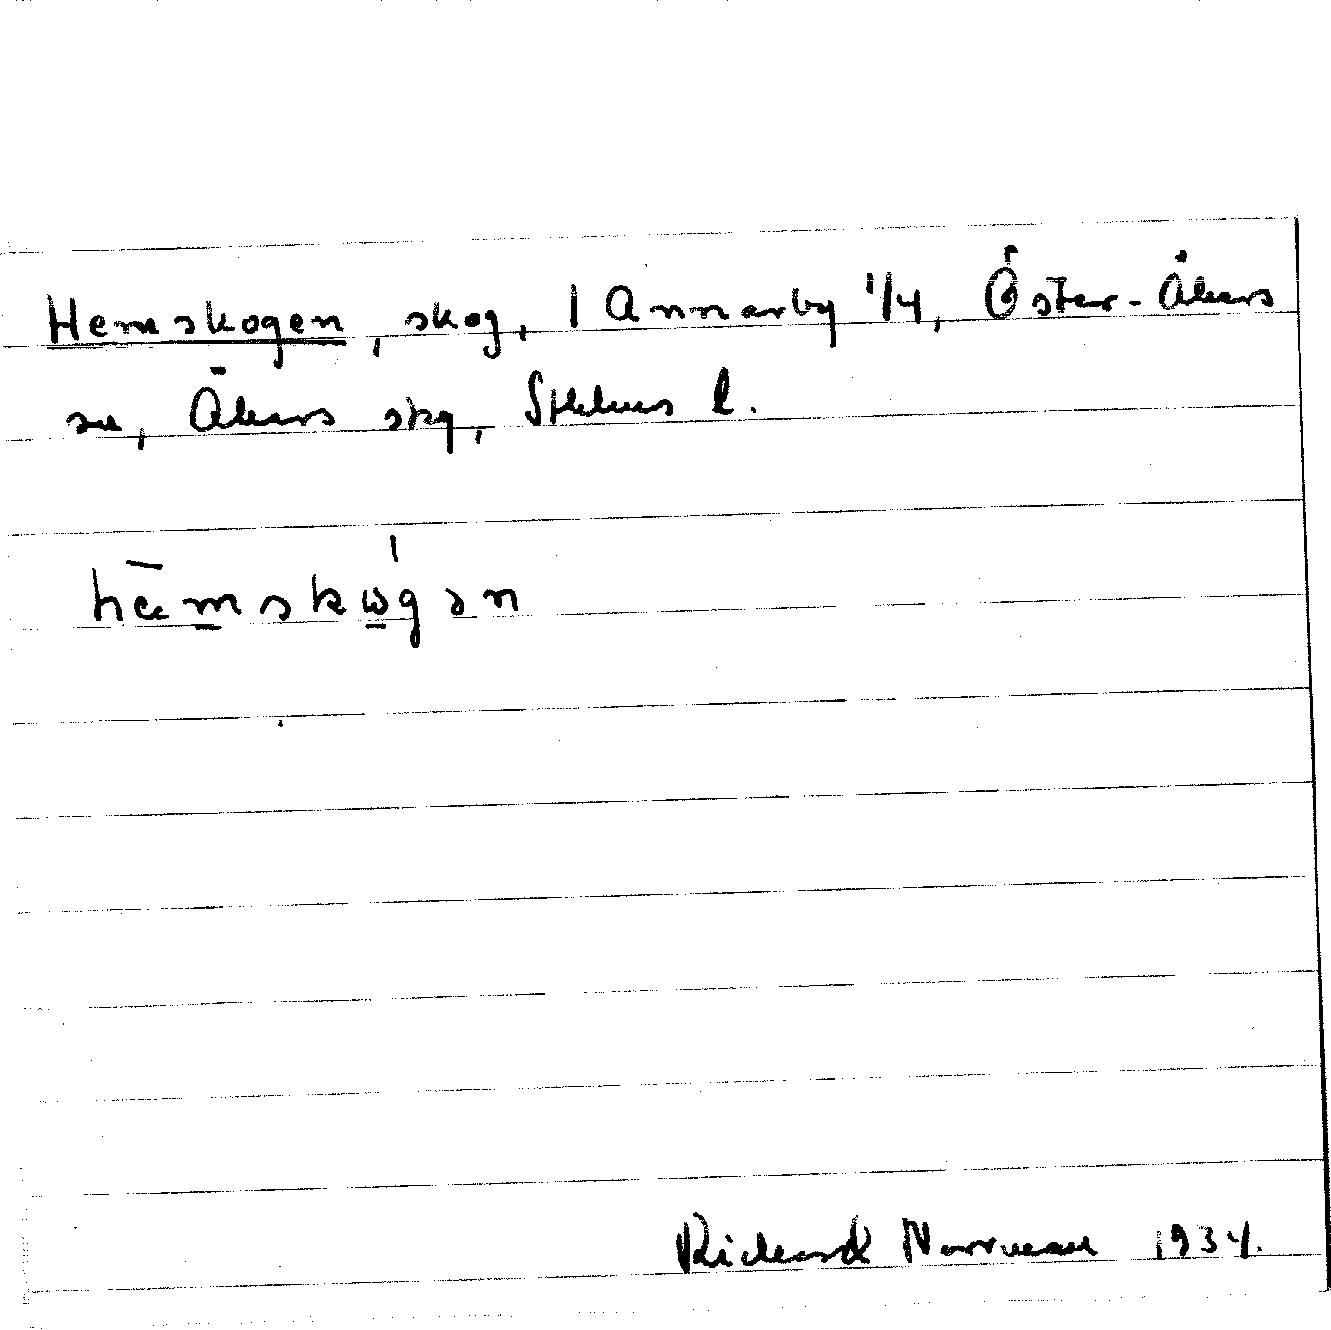 Hemskogen, skog, 1 Annarby 1/4, Öster-Åkers
sn, Åkers skg, Sthlms l.
hæ̀mskώ̱gən
Rickard Norrman 1934.